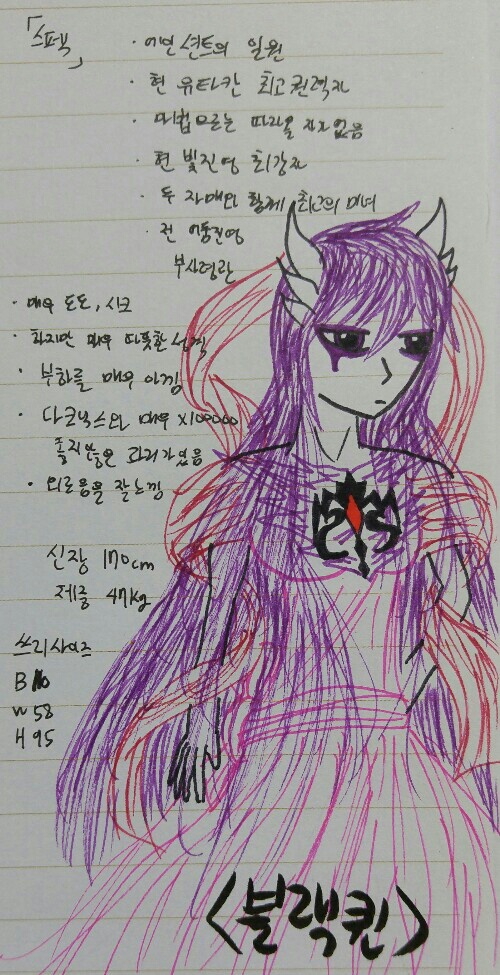 「스펙」
· 어인션트의 일원
· 현 유타칸 최고 권력자
· 마법으로는 따라올 자가 없음
· 현 빛진영 최강자
· 두 자매와 함께 최고의 미녀
· 전 어둠진영
부사령관
· 매우 도도, 시크
· 하지만 매우 따뜻한 성격
· 부하를 매우 아낌
· 다크닉스와 매우 x100000
좋지 않은 과거가 있음
· 외로움을 잘 느낌
신장 170cm
체중 47kg
쓰리사이즈
B
W 58
H 95
<블랙퀸>